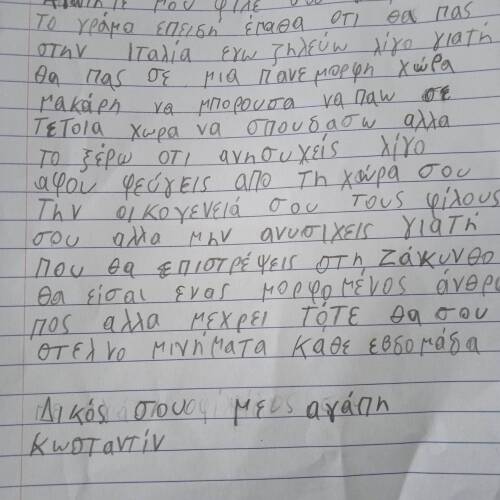 μου φιλε
Το γράμο επειδη έμαθα οτι θα πας
στην Ιταλία εγω ζηλεύω λίγο γιατή
θα πας σε μια πανεμορφη χώρα
μακάρη να μπορουσα να παω σε
τετοια χωρα να σπουδασω αλλα
το ξέρω οτι ανησυχείς λίγο
αφου φεύγεις απο τη χώρα σου
την οικογενειά σου τους φίλους
σου αλλα μην ανυσιχεις γιατή
που θα επιστρέψεις στη Ζάκυνθο
θα είσαι ενας μορφομένος άνθρο
πος αλλα μεχρει τότε θα σου
στελνο μινήματα κάθε εβδομάδα
Δικός σου με αγάπη
Κωσταντίν